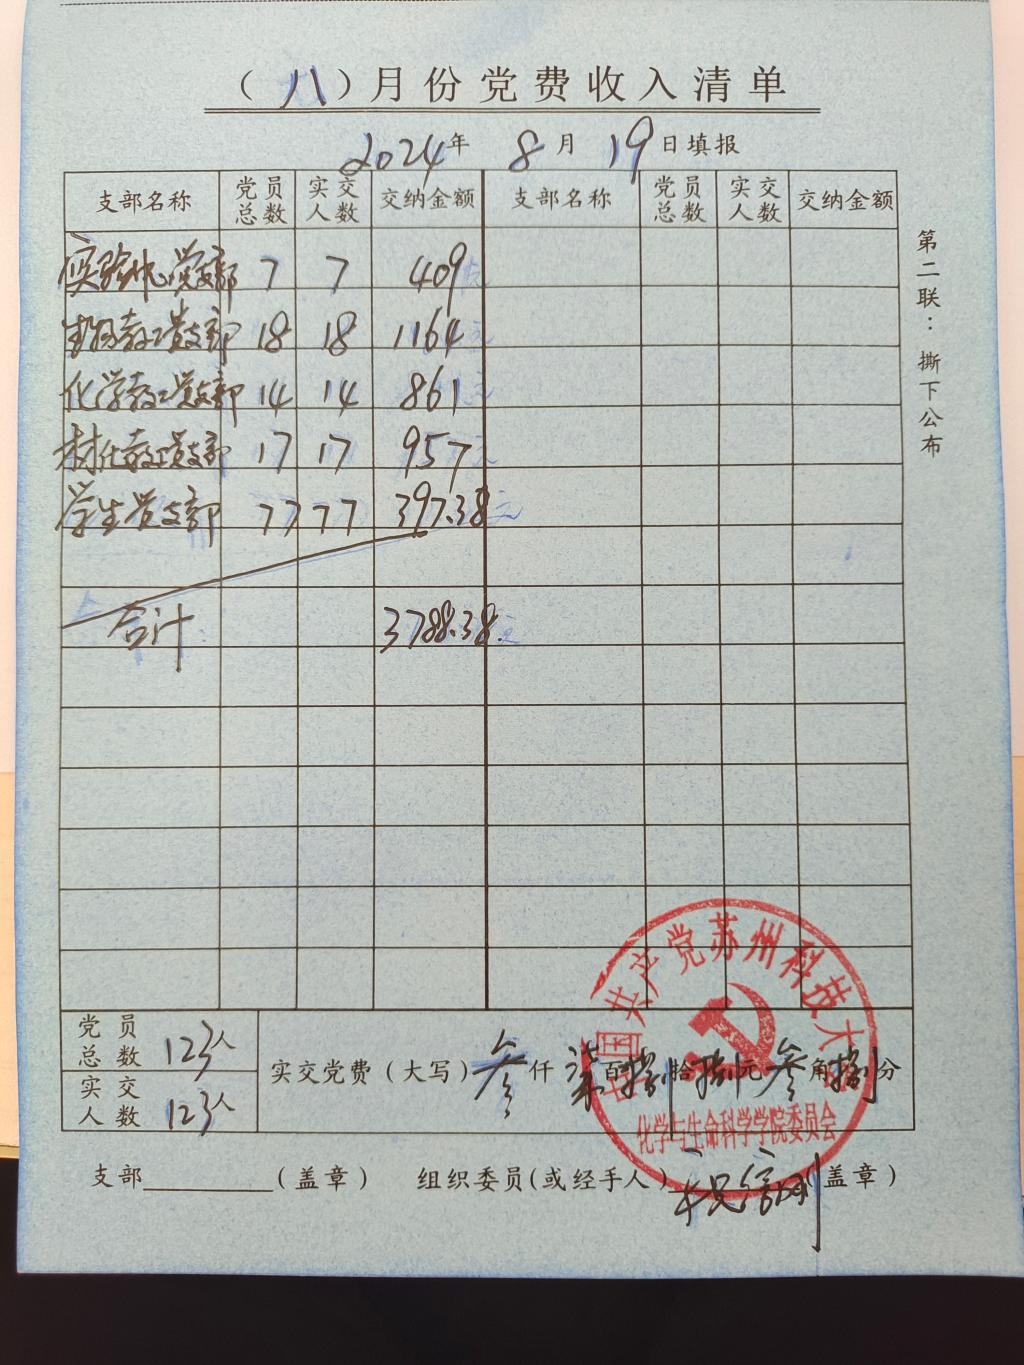 （八）月份党费收入清单
2024年 8月 19日填报
支部名称 党员总数 实交人数 交纳金额 支部名称 党员总数 实交人数 交纳金额
实验中心党支部 7 7 409
生物教工党支部 18 18 1164
化学教工党支部 14 14 861
材化教工党支部 17 17 957
学生党支部 77 77 397.38
合计 3788.38
第二联：撕下公布
党员总数 123人
实交人数 123人
实交党费（大写）叁仟柒百捌拾捌元叁角捌分
中国共产党苏州科技大学
化学与生命科学学院委员会
支部（盖章） 组织委员(或经手人)（盖章）